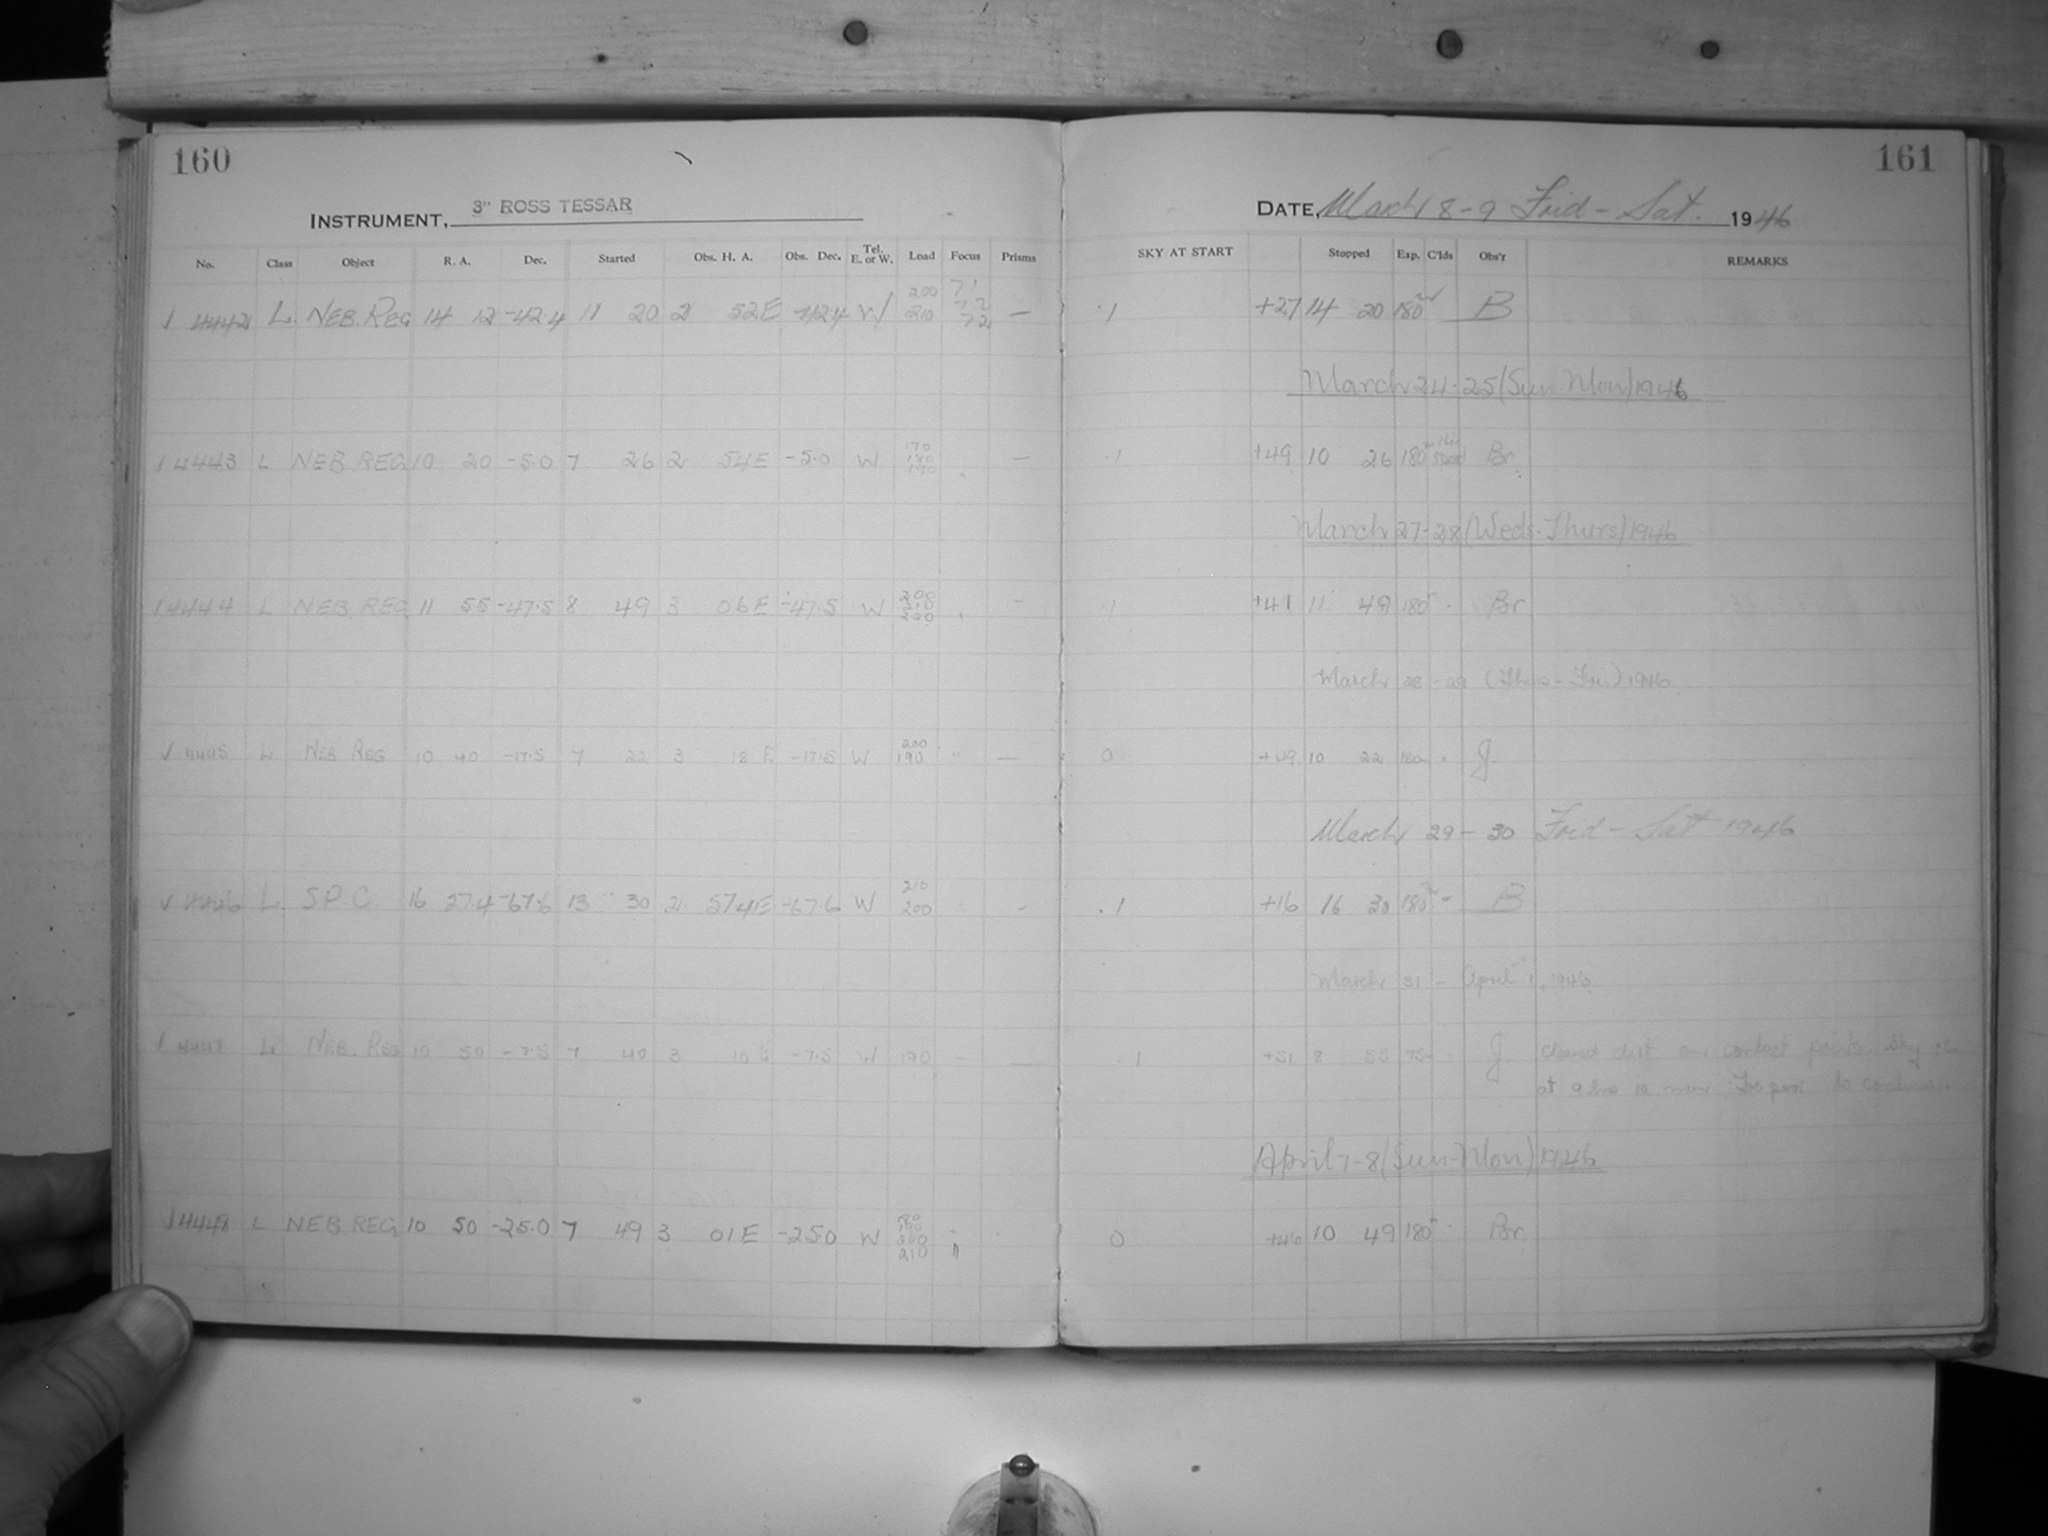 160
161
INSTRUMENT, 3" ROSS TESSAR
DATE, March 8-9 Frid - Sat. 1946
No. Class Object R. A. Dec. Started Obs. H. A. Obs. Dec. Tel. E. or W. Load Focus Prisms SKY AT START Stopped Exp. C'lds Obs'r REMARKS
4442 L. NEB. REG 14 12 -42.4 11 20 2 52E -42.4 W 200 210 71 72 72 — .1 +27 14 20 180 B
March 24-25 (Sun-Mon) 1946
4443 L NEB. REG 10 20 -5.0 7 26 2 54E -5.0 W 170 190 — .1 +49 10 26 180 Br.
March 27-28 (Weds-Thurs) 1946
4444 L NEB. REG 11 55 -47.5 8 49 3 06E -47.5 W 200 210 220 - .1 +41 11 49 180 Br
March 28-29 (Thus-Fri.) 1946.
4445 L NEB REG 10 40 -17.5 7 22 3 18 E -17.5 W 200 190 — 0 +49 10 22 180 J.
March 29-30 Frid - Sat 1946
4446 L. S.P.C. 16 27.4 -67.6 13 30 2 57.4E -67.6 W 210 200 - .1 +16 16 30 180 B
March 31 - April 1, 1946
4447 L NEB. REG 10 50 -7.5 7 40 3 10 E -7.5 W 190 — — .1 +51 8 55 75 J. Cleaned dirt on contact points. Sky
at 9 hrs Too poor to continue.
April 7-8 (Sun-Mon) 1946
4448 L NEB. REG. 10 50 -25.0 7 49 3 01E -25.0 W 180 190 200 210 0 +46 10 49 180 Br.